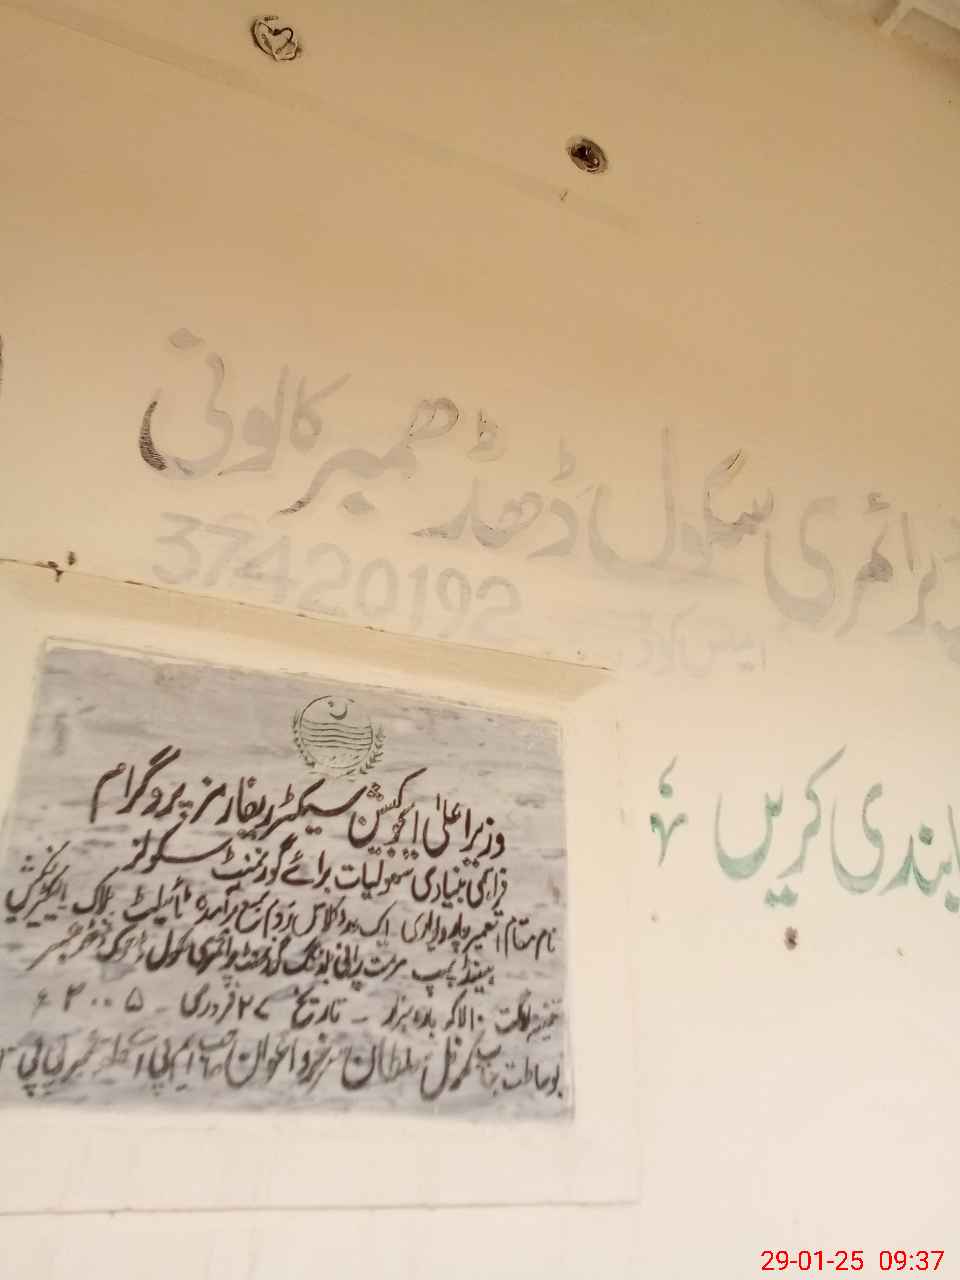 پرائمری سکول ڈھڈھمبر کالونی
37420192
ایمس کوڈ
پابندی کریں
وزیراعلیٰ ایجوکیشن سیکٹر ریفارمز پروگرام
فراہمی بنیادی سہولیات برائے گورنمنٹ سکولز
نام مقام تعمیر چار دیواری ایک عدد کلاس روم بمع برآمدہ ٹائیلٹ بلاک
ہینڈ پمپ مرمت پرانی بلڈنگ گورنمنٹ پرائمری سکول
تخمینہ لاگت ۱۰ لاکھ بارہ ہزار ۔ تاریخ ۲۷ فروری ۔ ۲۰۰۵ء
بوساطت جناب کرنل سلطان سرخرو اعوان صاحب ایم پی اے
29-01-25 09:37